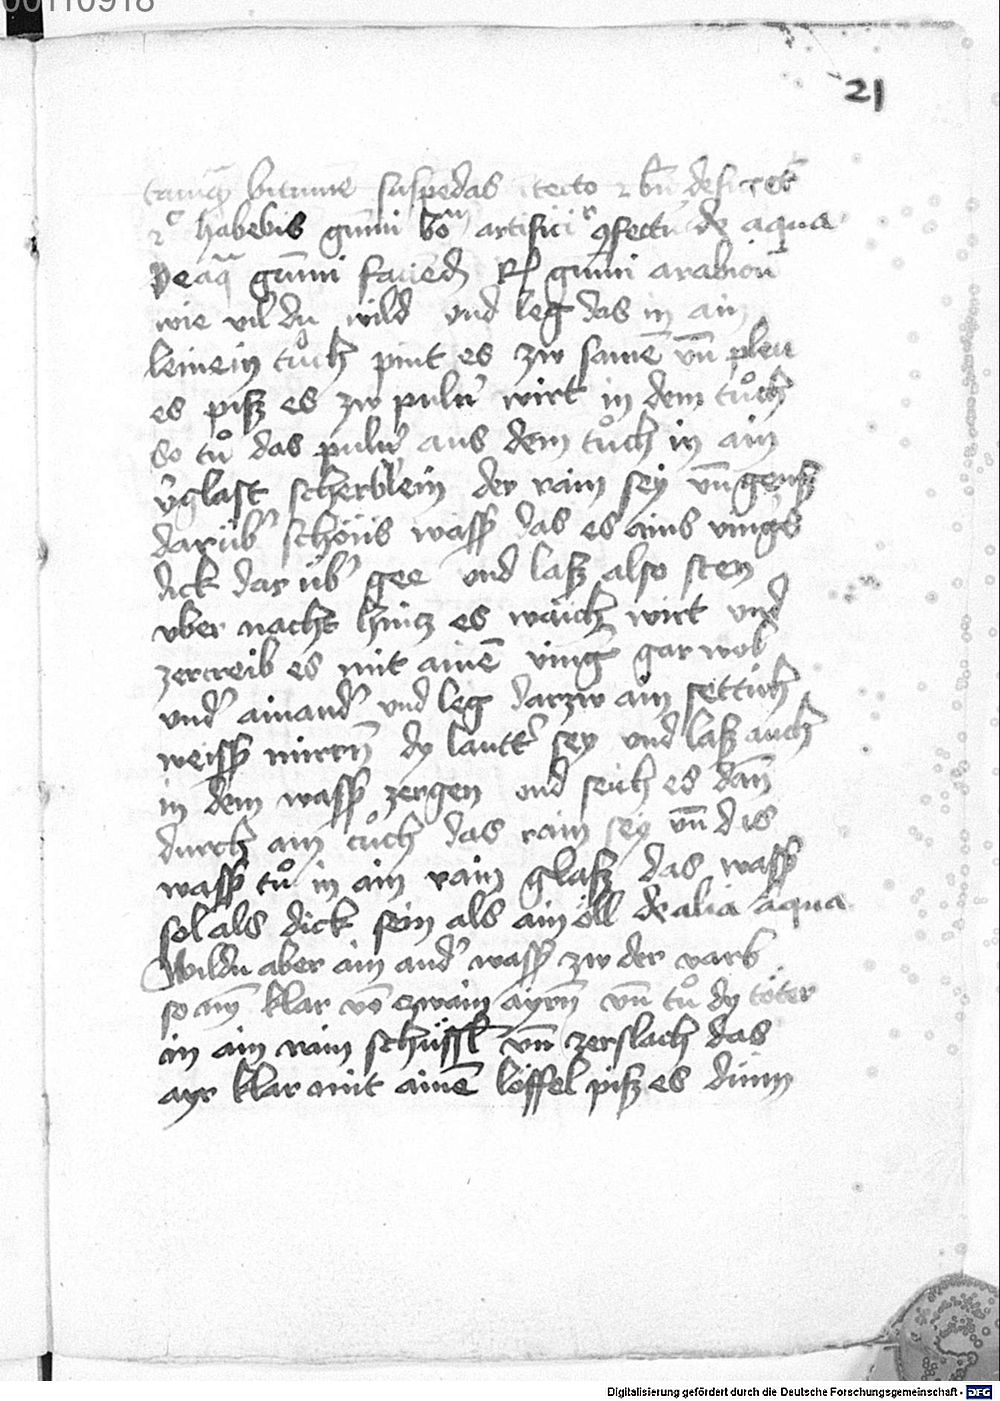 00110918
21
bitumine suspēdas ītecto
habebis gūmi artifici de aqua
De aq̄ gūmi faciēd R gūmi arabicū
wie vil du wild vnd leg das in ain
leinein tůch pint es zw samē vn̄ pleu
es pisz es zw pulu̕ wirt in dem tůch
So tů das pulu̕ aus dem tůch in ain
v̕glast scherblein der rain sey vn̄ geusz
darüb̕ schöns wass̕ das es ains ving̕s
dick dar üb̕ gee vnd lasz also sten
vber nacht hincz es waich wirt vnd
zertreib es mit ainē ving̕ gar wol
vnd̕ ainand̕ vnd leg darzw ain settich
weiss̕ mirrn̄ dy lautt̕ sey vnd lasz auch
in dem wass̕ zergen vnd seich es dan̄
durch ain tůch das rain sey vn̄ dis
wass̕ tů in ain rain glasz das wass̕
sol als dick sein als ain öll de alia aqua
Wildu aber ain and̕ wass̕ zw der varb
so nȳ klar vō czwain ayrn̄ vn̄ tů dy töter
in ain rain schüssl vn̄ zerslach das
ayr klar mit ainē löffel pisz es dünn
Digitalisierung gefördert durch die Deutsche Forschungsgemeinschaft - DFG